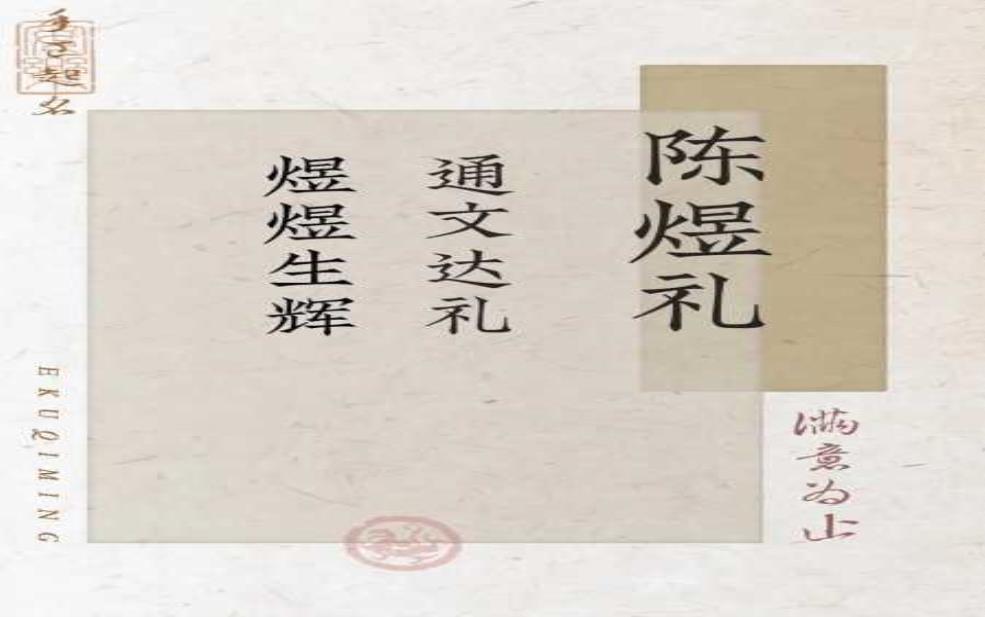 陈煜礼
通文达礼
煜煜生辉
满意为止
起名
EKUQIMING